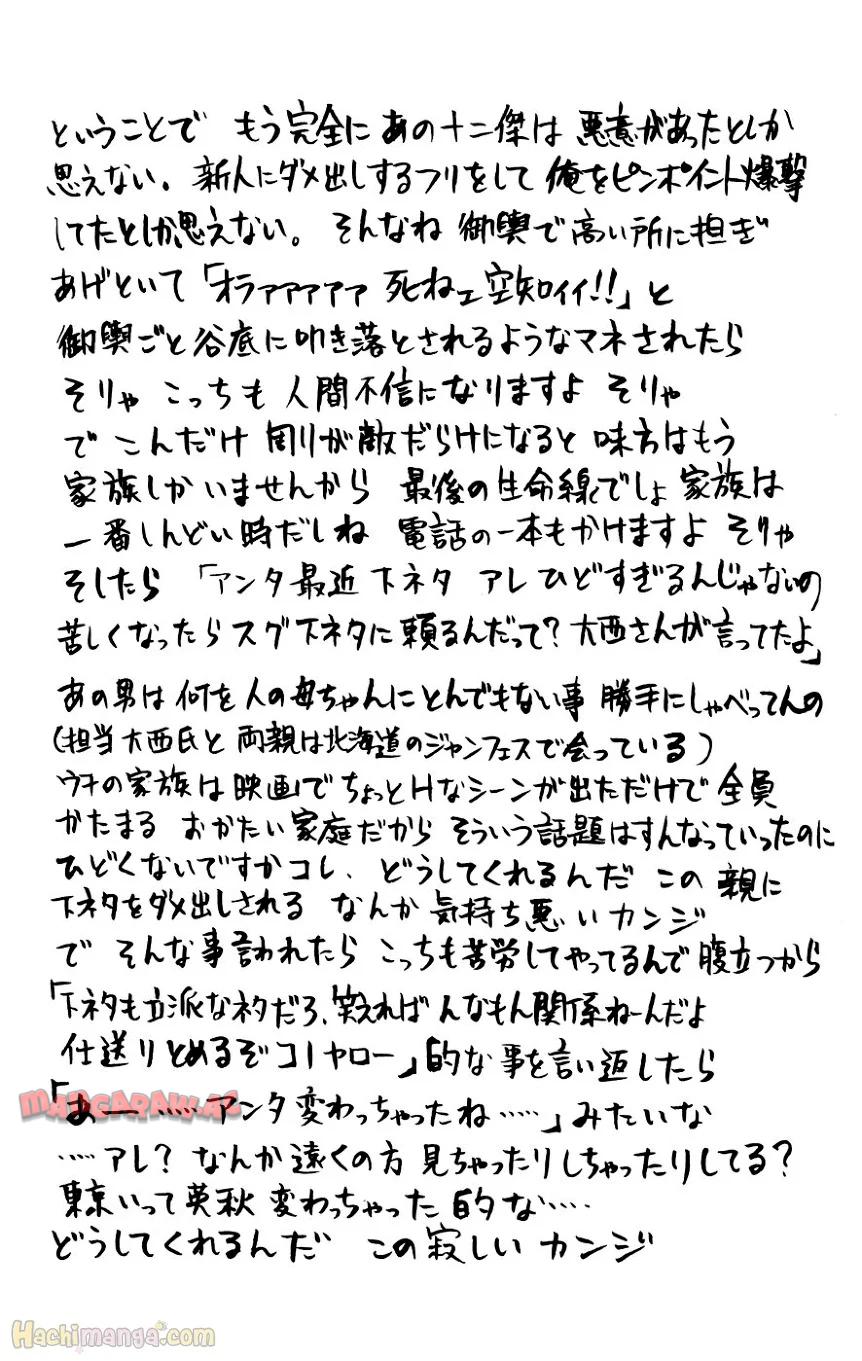 ということで もう完全に あの十二傑は 悪意があったとしか
思えない。新人にダメ出しするフリをして 俺をピンポイント爆撃
してたとしか思えない。そんなね 御輿で高い所に担ぎ
あげといて「オラァァァァァ 死ねェ空知ィィ!!」と
御輿ごと谷底に叩き落とされるようなマネされたら
そりゃ こっちも 人間不信になりますよ そりゃ
で こんだけ 周りが敵だらけになると 味方はもう
家族しかいませんから 最後の生命線でしょ 家族は
一番しんどい時だしね 電話の一本もかけますよ そりゃ
そしたら 「アンタ最近 下ネタ アレ ひどすぎるんじゃないの
苦しくなったらスグ下ネタに頼るんだって? 大西さんが言ってたよ」
あの男は 何を 人の母ちゃんにとんでもない事 勝手にしゃべってんの
(担当大西氏と 両親は北海道のジャンフェスで会っている)
ウチの家族は 映画でちょっとHなシーンが出ただけで 全員
かたまる おかたい家庭だから そういう話題はすんなっていったのに
ひどくないですかコレ、どうしてくれるんだ この 親に
下ネタをダメ出しされる なんか 気持ち悪い カンジ
で そんな事言われたら こっちも苦労してやってるんで 腹立つから
「下ネタも立派なネタだろ、笑えればんなもん関係ねーんだよ
仕送りとめるぞコノヤロー」的な事を言い返したら
「あー……アンタ変わっちゃったね……」みたいな
……アレ? なんか遠くの方 見ちゃったりしちゃったりしてる?
東京いって英秋 変わっちゃった 的な……
どうしてくれるんだ この寂しい カンジ
MANGARAW.AC
Hachimanga.com